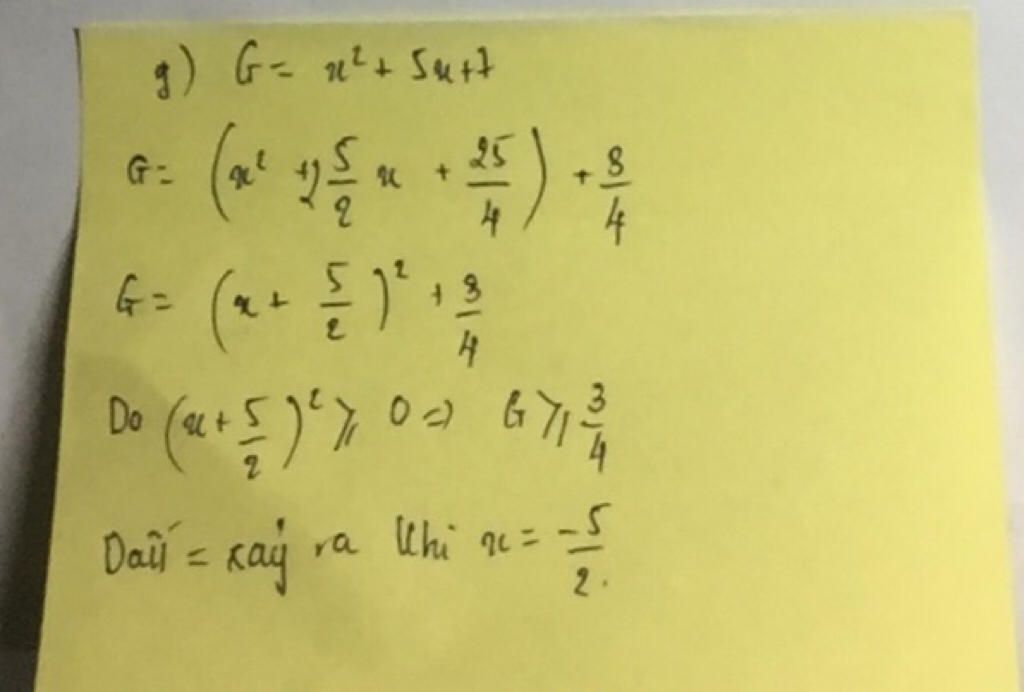 g) G = x² + 5x + 7
G = (x² + 2 5/2 x + 25/4) + 3/4
G = (x + 5/2)² + 3/4
Do (x + 5/2)² ⩾ 0 => G ⩾ 3/4
Dấu = xảy ra khi x = -5/2.